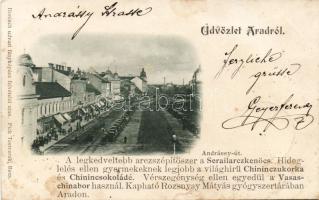 Andrássy Strasse
Üdvözlet Aradról.
Herzliche
grüsse
Geyer Ferencz
Andrássy-út.
A legkedveltebb arczszépítőszer a Serailarczkenőcs. Hideg-
lelés ellen gyermekeknek legjobb a világhírű Chininczukorka
és Chinincsokoládé. Vérszegénység ellen egyedül a Vasas-
chinabor használ. Kapható Rozsnyay Mátyás gyógyszertárában
Aradon.